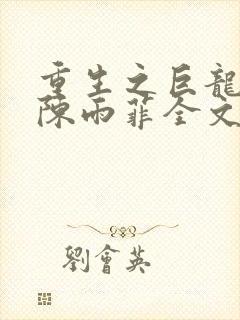 重生之巨龍
陳雨菲全文
劉會英